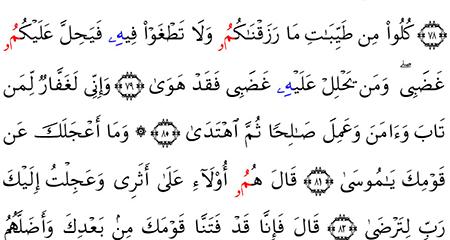 ﴿٧٨﴾ كُلُوا۟ مِن طَيِّبَـٰتِ مَا رَزَقْنَـٰكُمُۥ وَلَا تَطْغَوْا۟ فِيهِۦ فَيَحِلَّ عَلَيْكُمُۥ
غَضَبِى ۖ وَمَن يَحْلِلْ عَلَيْهِۦ غَضَبِى فَقَدْ هَوَىٰ ﴿٧٩﴾ وَإِنِّى لَغَفَّارٌ لِّمَن
تَابَ وَءَامَنَ وَعَمِلَ صَـٰلِحًا ثُمَّ ٱهْتَدَىٰ ﴿٨٠﴾ وَمَا أَعْجَلَكَ عَن
قَوْمِكَ يَـٰمُوسَىٰ ﴿٨١﴾ قَالَ هُمُۥ أُو۟لَاءِ عَلَىٰ أَثَرِى وَعَجِلْتُ إِلَيْكَ
رَبِّ لِتَرْضَىٰ ﴿٨٢﴾ قَالَ فَإِنَّا قَدْ فَتَنَّا قَوْمَكَ مِنۢ بَعْدِكَ وَأَضَلَّهُمُ